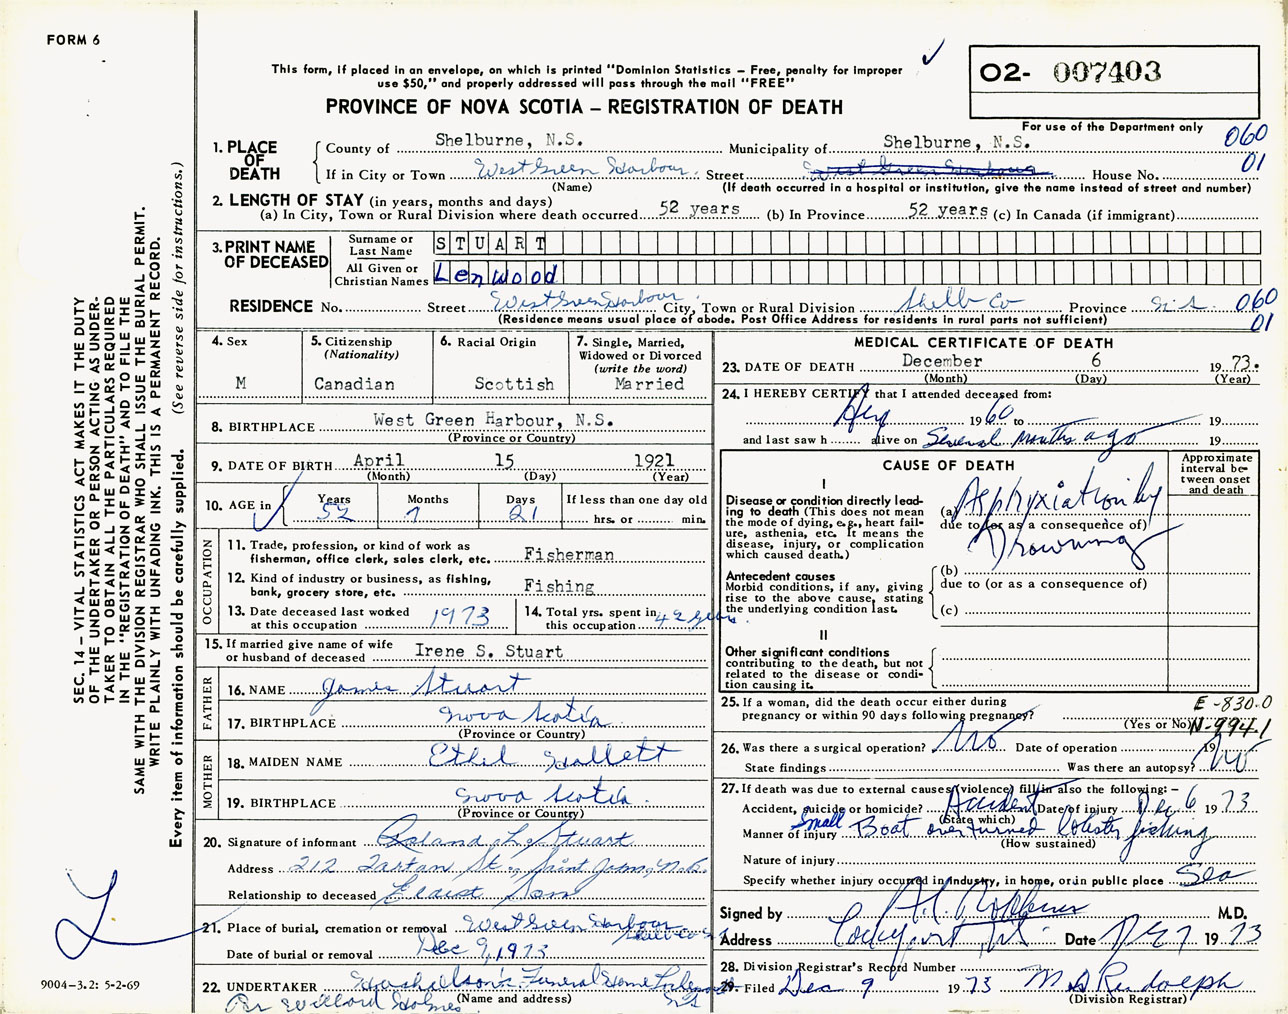 FORM 6
This form, if placed in an envelope, on which is printed "Dominion Statistics – Free, penalty for improper
use $50," and properly addressed will pass through the mail "FREE"
PROVINCE OF NOVA SCOTIA – REGISTRATION OF DEATH
02- 007403
For use of the Department only
060
01
1. PLACE OF DEATH
County of Shelburne, N.S. Municipality of Shelburne, N.S.
If in City or Town West Green Harbour. Street West Green Harbour House No.
(Name) (If death occurred in a hospital or institution, give the name instead of street and number)
2. LENGTH OF STAY (in years, months and days)
(a) In City, Town or Rural Division where death occurred 52 years (b) In Province 52 years (c) In Canada (if immigrant)
3. PRINT NAME OF DECEASED
Surname or Last Name STUART
All Given or Christian Names Lenwood
RESIDENCE No. Street West Green Harbour City, Town or Rural Division Shelb Co Province N.S. 060
01
(Residence means usual place of abode. Post Office Address for residents in rural parts not sufficient)
4. Sex M
5. Citizenship (Nationality) Canadian
6. Racial Origin Scottish
7. Single, Married, Widowed or Divorced (write the word) Married
8. BIRTHPLACE West Green Harbour, N.S.
(Province or Country)
9. DATE OF BIRTH April 15 1921
(Month) (Day) (Year)
10. AGE in Years 52 Months 7 Days 21 If less than one day old hrs. or min.
OCCUPATION
11. Trade, profession, or kind of work as fisherman, office clerk, sales clerk, etc. Fisherman
12. Kind of industry or business, as fishing, bank, grocery store, etc. Fishing
13. Date deceased last worked at this occupation 1973
14. Total yrs. spent in this occupation 42 years.
15. If married give name of wife or husband of deceased Irene S. Stuart
FATHER
16. NAME James Stuart
17. BIRTHPLACE Nova Scotia
(Province or Country)
MOTHER
18. MAIDEN NAME Ethel
19. BIRTHPLACE Nova Scotia.
(Province or Country)
20. Signature of informant L. Stuart
Address 212 Tartan St., Saint John, N.B.
Relationship to deceased Eldest Son
21. Place of burial, cremation or removal West Green Harbour
Shelb Co N.S.
Date of burial or removal Dec 9, 1973
22. UNDERTAKER Funeral Home
N.S
(Name and address)
Per Willard Holmes
MEDICAL CERTIFICATE OF DEATH
23. DATE OF DEATH December 6 1973.
(Month) (Day) (Year)
24. I HEREBY CERTIFY that I attended deceased from:
1960 to 19
and last saw h alive on Several months ago 19
CAUSE OF DEATH
Approximate interval between onset and death
I
Disease or condition directly leading to death (This does not mean the mode of dying, e.g., heart failure, asthenia, etc. It means the disease, injury, or complication which caused death.)
(a) Asphyxiation by
due to (or as a consequence of)
Drowning
Antecedent causes
Morbid conditions, if any, giving rise to the above cause, stating the underlying condition last.
(b)
due to (or as a consequence of)
(c)
II
Other significant conditions
contributing to the death, but not related to the disease or condition causing it.
25. If a woman, did the death occur either during pregnancy or within 90 days following pregnancy?
(Yes or No)
E-830.0
N-994.1
26. Was there a surgical operation? No Date of operation 19
State findings Was there an autopsy? No
27. If death was due to external causes (violence) fill in also the following:–
Accident, suicide or homicide? Accident Date of injury Dec 6 1973
(State which)
Manner of injury Small Boat overturned lobster fishing
(How sustained)
Nature of injury
Specify whether injury occurred in industry, in home, or in public place Sea
Signed by M.D.
Address Lockeport N.S. Date Dec 7 1973
28. Division Registrar's Record Number
29. Filed Dec 9 1973 M D Randolph
(Division Registrar)
SEC. 14 – VITAL STATISTICS ACT MAKES IT THE DUTY
OF THE UNDERTAKER OR PERSON ACTING AS UNDER-
TAKER TO OBTAIN ALL THE PARTICULARS REQUIRED
IN THE "REGISTRATION OF DEATH" AND TO FILE THE
SAME WITH THE DIVISION REGISTRAR WHO SHALL ISSUE THE BURIAL PERMIT.
WRITE PLAINLY WITH UNFADING INK. THIS IS A PERMANENT RECORD.
Every item of information should be carefully supplied. (See reverse side for instructions.)
9004-3.2: 5-2-69